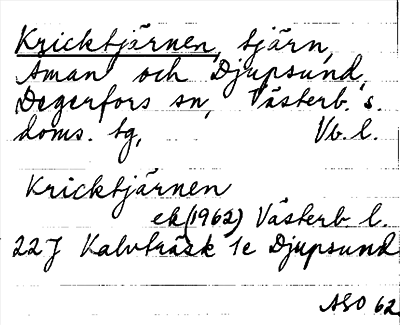 Kricktjärnen, tjärn,
Åman och Djupsund,
Degerfors sn, Västerb. s.
doms. tg, Vb. l.
Kricktjärnen
ek (1962) Västerb l.
22J Kalvträsk 1e Djupsund
ASO 62